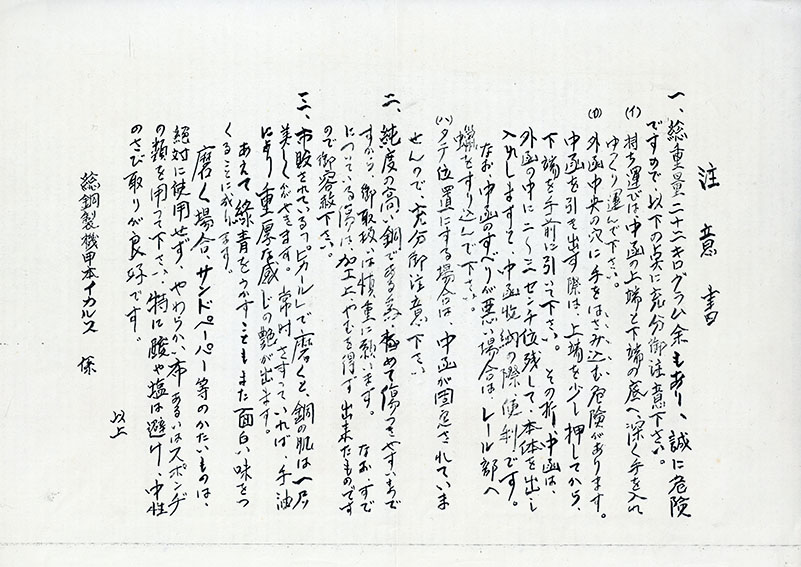 注意書
一、総重量二十二キログラム余もあり、誠に危険
ですので、以下の点に充分御注意下さい。
(イ) 持ち運びは中函の上端と下端の底へ深く手を入れ
ゆっくり運んで下さい。
(ロ) 外函中央の穴に手をはさみ込む危険があります。
中函を引き出す際は、上端を少し押してから、
下端を手前に引いて下さい。その折、中函は、
外函の中に二〜三センチ位残して、本体を出し
入れしますと、中函収納の際便利です。
なお、中函のすべりが悪い場合は、レール部へ
蠟をすり込んで下さい。
(ハ) タテ位置にする場合は、中函が固定されていま
せんので、充分御注意下さい
二、純度の高い銅である為、極めて傷つきやすいで
すから、御取扱いは慎重に願います。なお、すで
についている傷は、加工上、やむを得ず出来たものです
ので御容赦下さい。
三、市販されている「ピカール」で磨くと、銅の肌は一段と
美しくかゞやきます。常時さすっていれば、手油
により重厚な感じの艶が出ます。
あえて緑青をうかすこともまた面白い味をつ
くることに成ります。
磨く場合、サンドペーパー等のかたいものは、
絶対に使用せず、やわらかい布あるいはスポンヂ
の類を用って下さい。特に酸や塩は避け、中性
のさび取りが良好です。
以上
総銅製機甲本イカルス 係